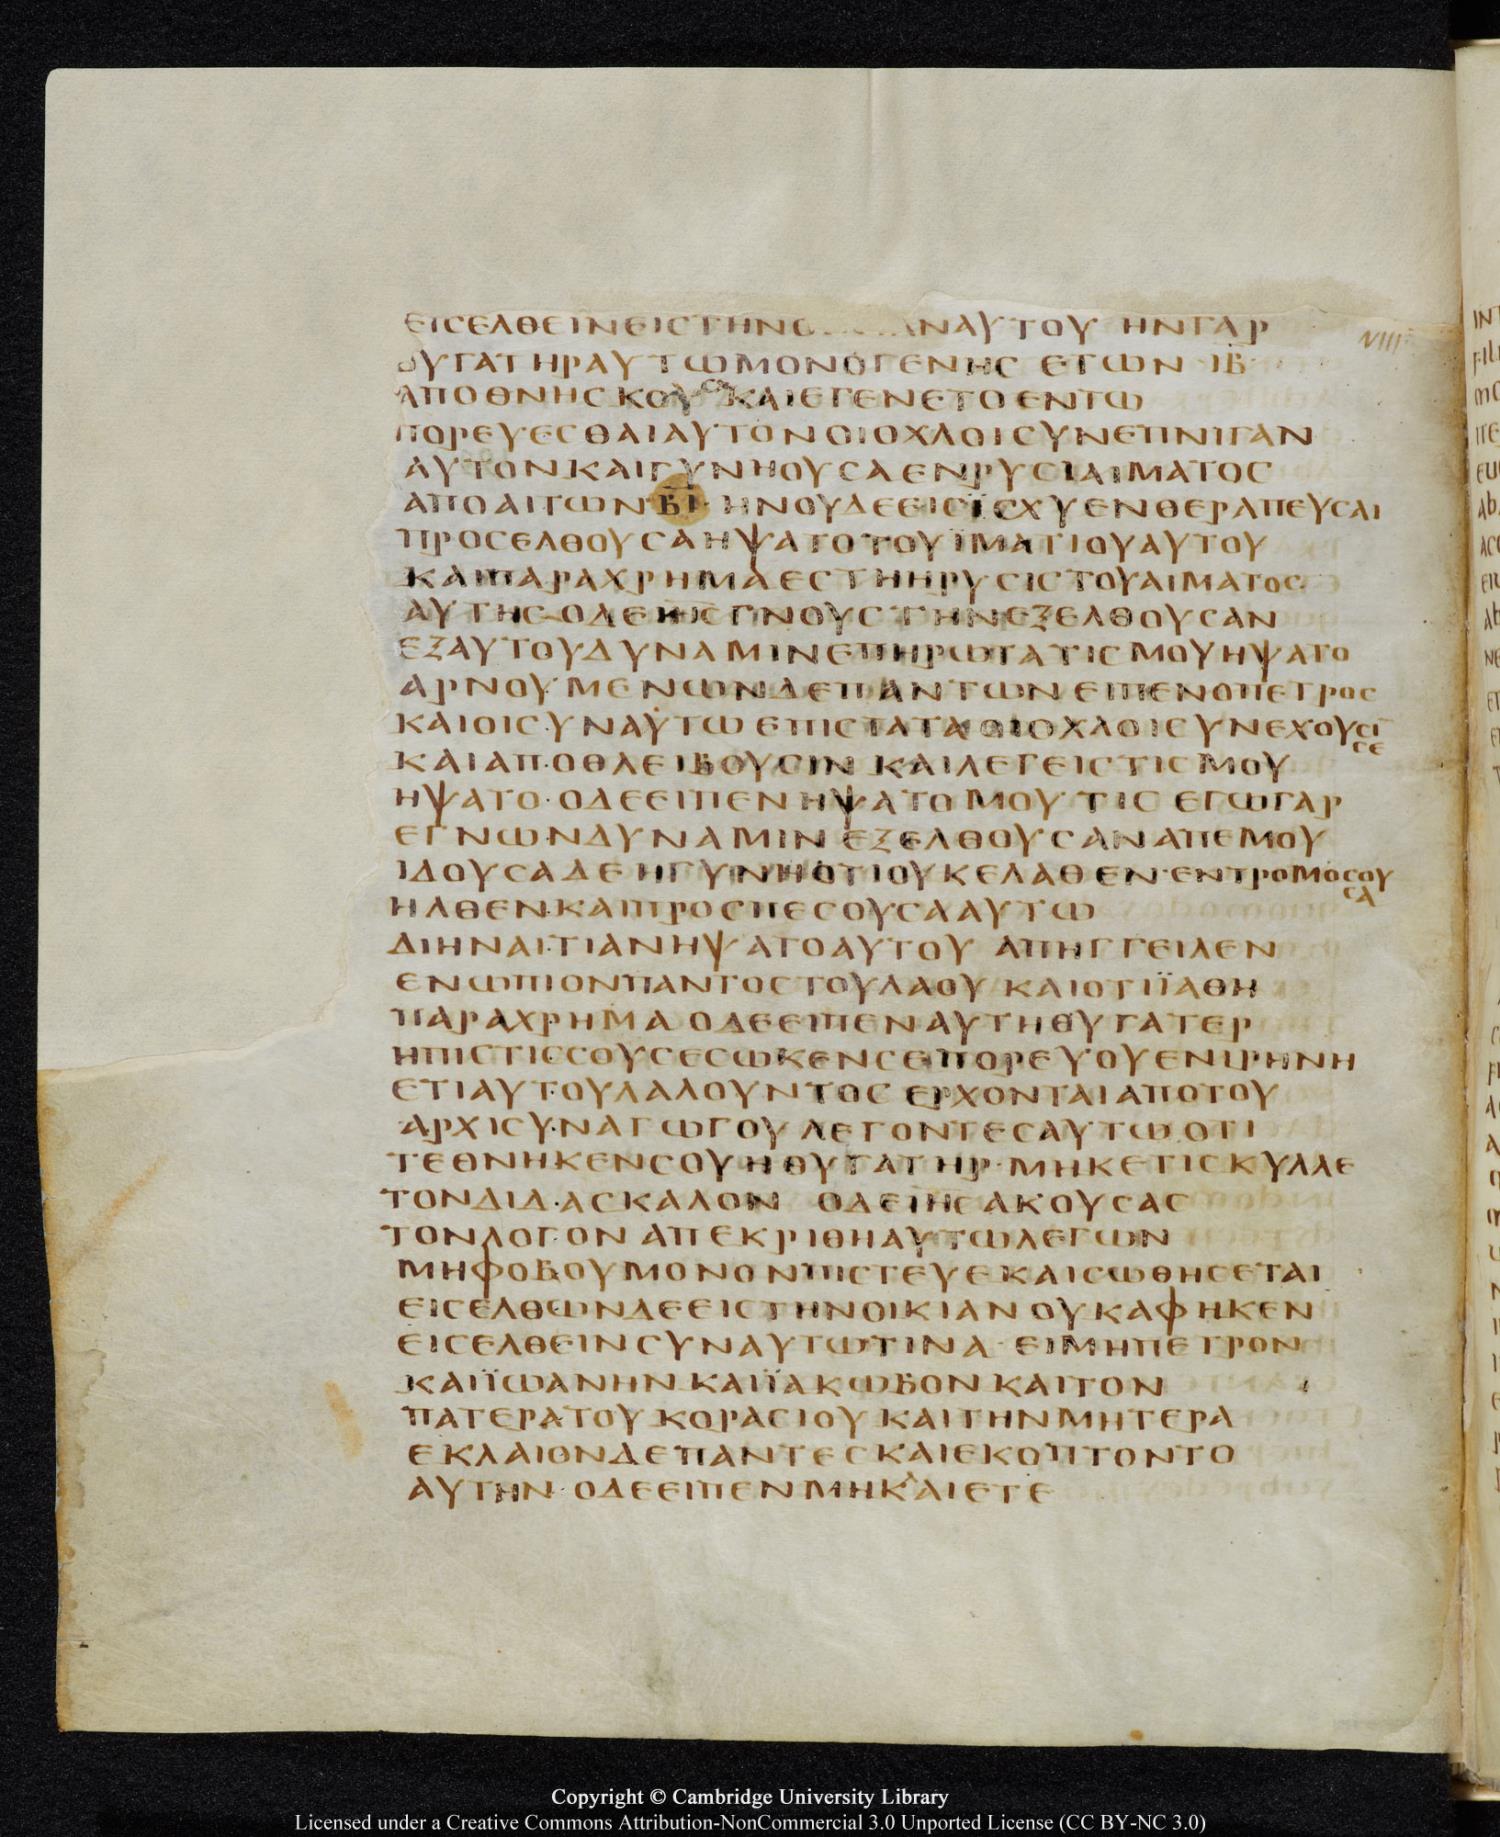 ΕΙϹΕΛΘΕΙΝΕΙϹΤΗΝΟ ΑΝΑΥΤΟΥ ΗΝΓΑΡ
ΘΥΓΑΤΗΡΑΥΤΩΜΟΝΟΓΕΝΗϹ ΕΤΩΝ ΙΒ
ΑΠΟΘΝΗϹΚΟΥϹΑ ΚΑΙΕΓΕΝΕΤΟΕΝΤΩ
ΠΟΡΕΥΕϹΘΑΙΑΥΤΟΝΟΙΟΧΛΟΙϹΥΝΕΠΝΙΓΑΝ
ΑΥΤΟΝΚΑΙΓΥΝΗΟΥϹΑΕΝΡΥϹΙΑΙΜΑΤΟϹ
ΑΠΟΑΙΤΩΝΒΙ· ΗΝΟΥΔΕΕΙϹΙϹΧΥΕΝΘΕΡΑΠΕΥϹΑΙ
ΠΡΟϹΕΛΘΟΥϹΑΗΨΑΤΟΤΟΥΪΜΑΤΙΟΥΑΥΤΟΥ
ΚΑΙΠΑΡΑΧΡΗΜΑΕϹΤΗΗΡΥϹΙϹΤΟΥΑΙΜΑΤΟϹ
ΑΥΤΗϹ·ΟΔΕΙΗϹΓΝΟΥϹΤΗΝΕΞΕΛΘΟΥϹΑΝ
ΕΞΑΥΤΟΥΔΥΝΑΜΙΝΕΠΗΡΩΤΑΤΙϹΜΟΥΗΨΑΤΟ
ΑΡΝΟΥΜΕΝΩΝΔΕΠΑΝΤΩΝΕΙΠΕΝΟΠΕΤΡΟϹ
ΚΑΙΟΙϹΥΝΑΥΤΩΕΠΙϹΤΑΤΑΟΙΟΧΛΟΙϹΥΝΕΧΟΥϹΙ
ϹΕ
ΚΑΙΑΠΟΘΛΕΙΒΟΥϹΙΝ ΚΑΙΛΕΓΕΙϹΤΙϹΜΟΥ
ΗΨΑΤΟ·ΟΔΕΕΙΠΕΝΗΨΑΤΟΜΟΥΤΙϹ ΕΓΩΓΑΡ
ΕΓΝΩΝΔΥΝΑΜΙΝ ΕΞΕΛΘΟΥϹΑΝΑΠΕΜΟΥ
ΙΔΟΥϹΑΔΕΗΓΥΝΗΟΤΙΟΥΚΕΛΑΘΕΝ·ΕΝΤΡΟΜΟϹΟΥ
ϹΑ
ΗΛΘΕΝ·ΚΑΙΠΡΟϹΠΕϹΟΥϹΑΑΥΤΩ
ΔΙΗΝΑΙΤΙΑΝΗΨΑΤΟΑΥΤΟΥ ΑΠΗΓΓΕΙΛΕΝ
ΕΝΩΠΙΟΝΠΑΝΤΟϹΤΟΥΛΑΟΥ ΚΑΙΟΤΙΪΑΘΗ
ΠΑΡΑΧΡΗΜΑ ΟΔΕΕΙΠΕΝΑΥΤΗΘΥΓΑΤΕΡ
ΗΠΙϹΤΙϹϹΟΥϹΕϹΩΚΕΝϹΕΠΟΡΕΥΟΥΕΝΙΡΗΝΗ
ΕΤΙΑΥΤΟΥΛΑΛΟΥΝΤΟϹ ΕΡΧΟΝΤΑΙΑΠΟΤΟΥ
ΑΡΧΙϹΥΝΑΓΩΓΟΥ ΛΕΓΟΝΤΕϹΑΥΤΩΟΤΙ
ΤΕΘΝΗΚΕΝϹΟΥΗΘΥΓΑΤΗΡ·ΜΗΚΕΤΙϹΚΥΛΛΕ
ΤΟΝΔΙΔΑϹΚΑΛΟΝ ΟΔΕΙΗϹΑΚΟΥϹΑϹ
ΤΟΝΛΟΓΟΝ ΑΠΕΚΡΙΘΗΑΥΤΩΛΕΓΩΝ
ΜΗΦΟΒΟΥΜΟΝΟΝΠΙϹΤΕΥΕΚΑΙϹΩΘΗϹΕΤΑΙ
ΕΙϹΕΛΘΩΝΔΕΕΙϹΤΗΝΟΙΚΙΑΝ ΟΥΚΑΦΗΚΕΝ
ΕΙϹΕΛΘΕΙΝϹΥΝΑΥΤΩΤΙΝΑ· ΕΙΜΗΠΕΤΡΟΝ
ΚΑΙΪΩΑΝΗΝΚΑΙΪΑΚΩΒΟΝΚΑΙΤΟΝ
ΠΑΤΕΡΑΤΟΥΚΟΡΑϹΙΟΥΚΑΙΤΗΝΜΗΤΕΡΑ
ΕΚΛΑΙΟΝΔΕΠΑΝΤΕϹΚΑΙΕΚΟΠΤΟΝΤΟ
ΑΥΤΗΝ·ΟΔΕΕΙΠΕΝΜΗΚΛΑΙΕΤΕ
Copyright © Cambridge University Library
Licensed under a Creative Commons Attribution-NonCommercial 3.0 Unported License (CC BY-NC 3.0)